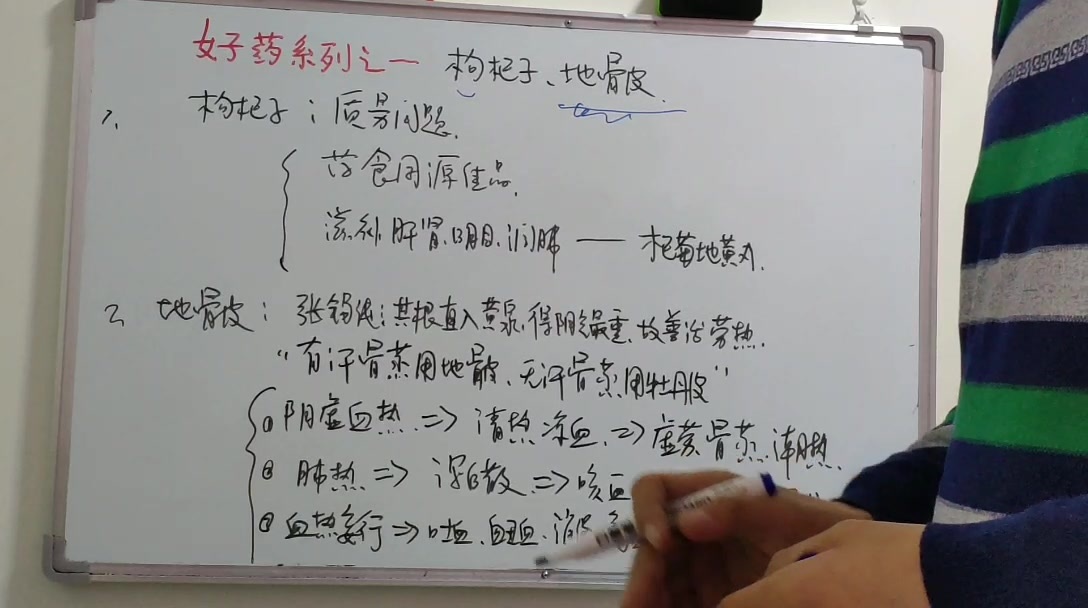 女子药系列之一 枸杞子、地骨皮.
1、 枸杞子：质易问题.
药食同源佳品.
滋补肝肾.明目.润肺 —— 杞菊地黄丸.
2、地骨皮：张锡纯：其根直入黄泉.得阴气最重.故善治劳热.
"有汗骨蒸用地骨皮、无汗骨蒸用牡丹皮"
① 阴虚血热 => 清热凉血 => 虚劳骨蒸.潮热.
② 肺热 => 泻白散 => 咳血
③ 血热妄行 => 吐血.衄血.消